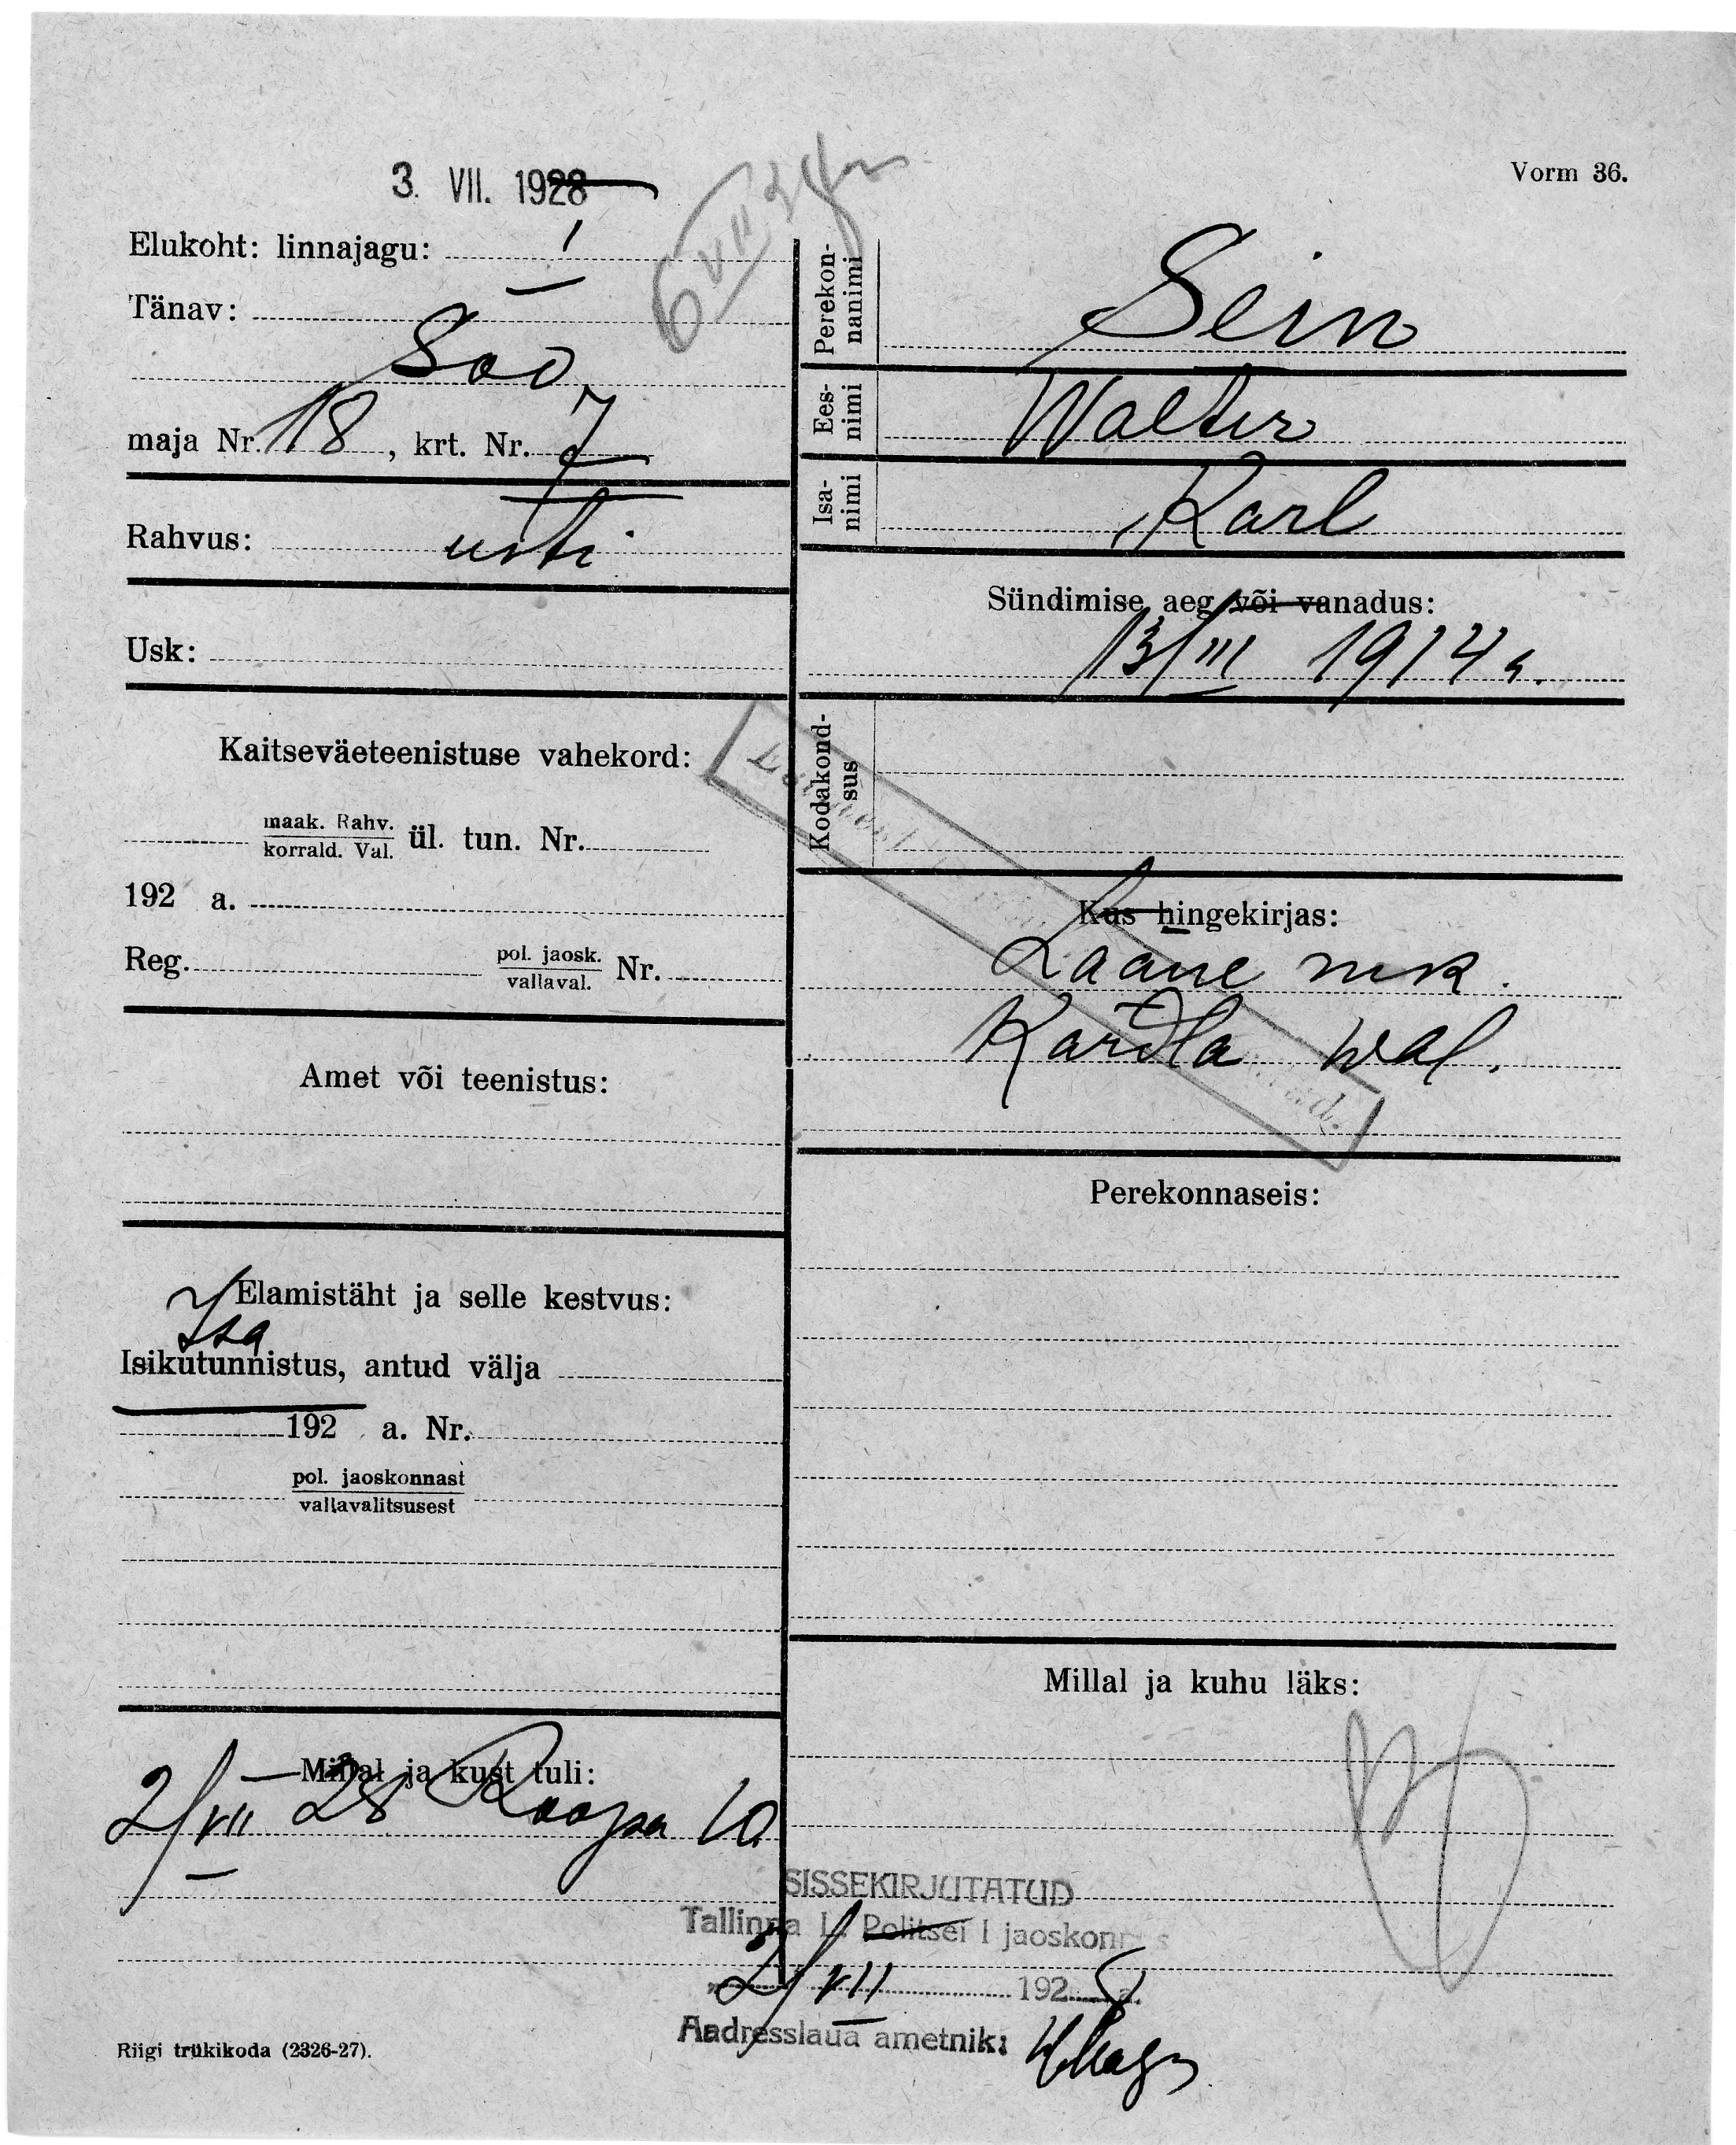 3. VII. 1928
Vorm 36.
Elukoht: linnajagu: I
Tänav:
Soo
maja Nr. 18, krt. Nr. 7
Rahvus: eesti
Usk:
Kaitseväeteenistuse vahekord:
maak. Rahv.
korrald. Val. ül. tun. Nr.
192 a.
Reg. pol. jaosk.
vallaval. Nr.
Amet või teenistus:
Elamistäht ja selle kestvus:
Isa
Isikutunnistus, antud välja
192 a. Nr.
pol. jaoskonnast
vallavalitsusest
Millal ja kust tuli:
2/VII 28 Roopa 10
Perekon-
nanimi
Sein
Ees-
nimi
Walter
Isa-
nimi
Karl
Sündimise aeg või vanadus:
13/III 1914 a.
Kodakond-
sus
Kus hingekirjas:
Lääne mk.
Kärdla wal.
Perekonnaseis:
Millal ja kuhu läks:
SISSEKIRJUTATUD
Tallinna L. Politsei I jaoskonnas
2/VII 1928 a.
Aadresslaua ametnik:
Riigi trükikoda (2326-27).